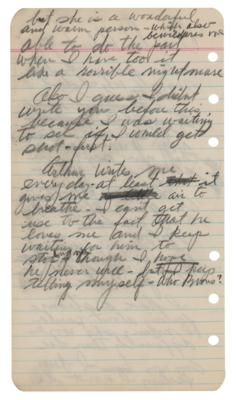 but she is a wonderful
and warm person - which also
bewilders me
able to do the part
when I have to it
like a horrible nightmare
Also I guess I didn't
write you before this
because I was waiting
to see if I would get
shot - first.
Arthur writes me
every day - at least it
gives me a little air to
breathe - I can't get
use to the fact that he
loves me and I keep
waiting for him to
stop loving me
though I hope
he never will - but I keep
telling myself - who knows?